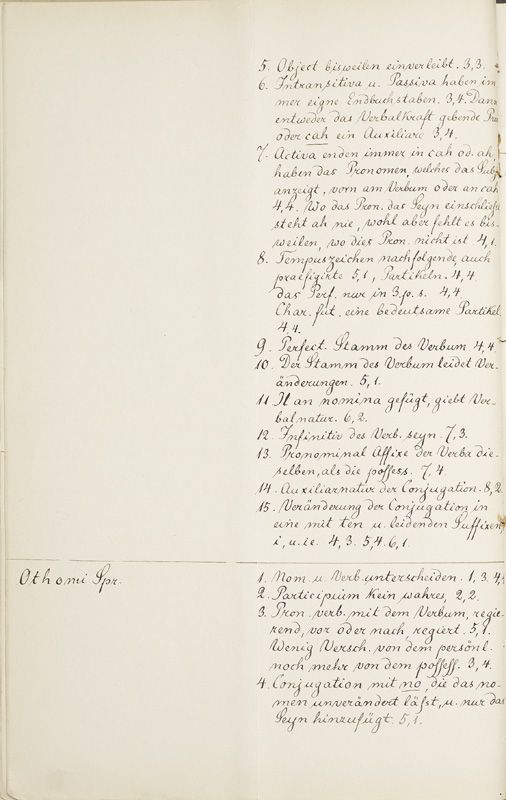 5. Object bisweilen einverleibt. 3,3.
6. Intransitiva u. Passiva haben im
mer eigne Endbuchstaben. 3,4. Dann
entweder das Verbalkraft gebende Pron
oder cah ein Auxiliare 3,4.
7. Activa enden immer in cah od. ah,
haben das Pronomen, welches das Subj.
anzeigt, vorn am Verbum oder an cah
4,4. Wo das Pron. das Seyn einschließt
steht ah nie, wohl aber fehlt es bis-
weilen, wo dies Pron. nicht ist 4,1.
8. Tempuszeichen nachfolgende, auch
praefigirte 5,1, Partikeln. 4,4.
das Perf. nur in 3. p. s. 4,4.
Char. fut. eine bedeutsame Partikel.
4,4.
9. Perfect. Stamm des Verbum 4,4.
10. Der Stamm des Verbum leidet Ver-
änderungen. 5,1.
11 Il an nomina gefügt, giebt Ver-
balnatur. 6,2.
12. Infinitiv des Verb. seyn. 7,3.
13. Pronominal Affixe der Verba die-
selben, als die possess. 7,4.
14. Auxiliarnatur der Conjugation. 8,2
15. Veränderung der Conjugation in
eine mit ten u. leidenden Suffixen
i, u. ie. 4,3. 5,4. 6,1.
Othomi Spr.
1. Nom. u. Verb. unterscheiden. 1,3. 4,
2. Participium kein wahres, 2,2.
3. Pron. verb. mit dem Verbum, regie-
rend, vor oder nach, regiert. 5,1.
Wenig Versch. von dem persönl.
noch mehr von dem possess. 3,4.
4. Conjugation mit no, die das no-
men unverändert läßt, u. nur das
Seyn hinzufügt. 5,1.